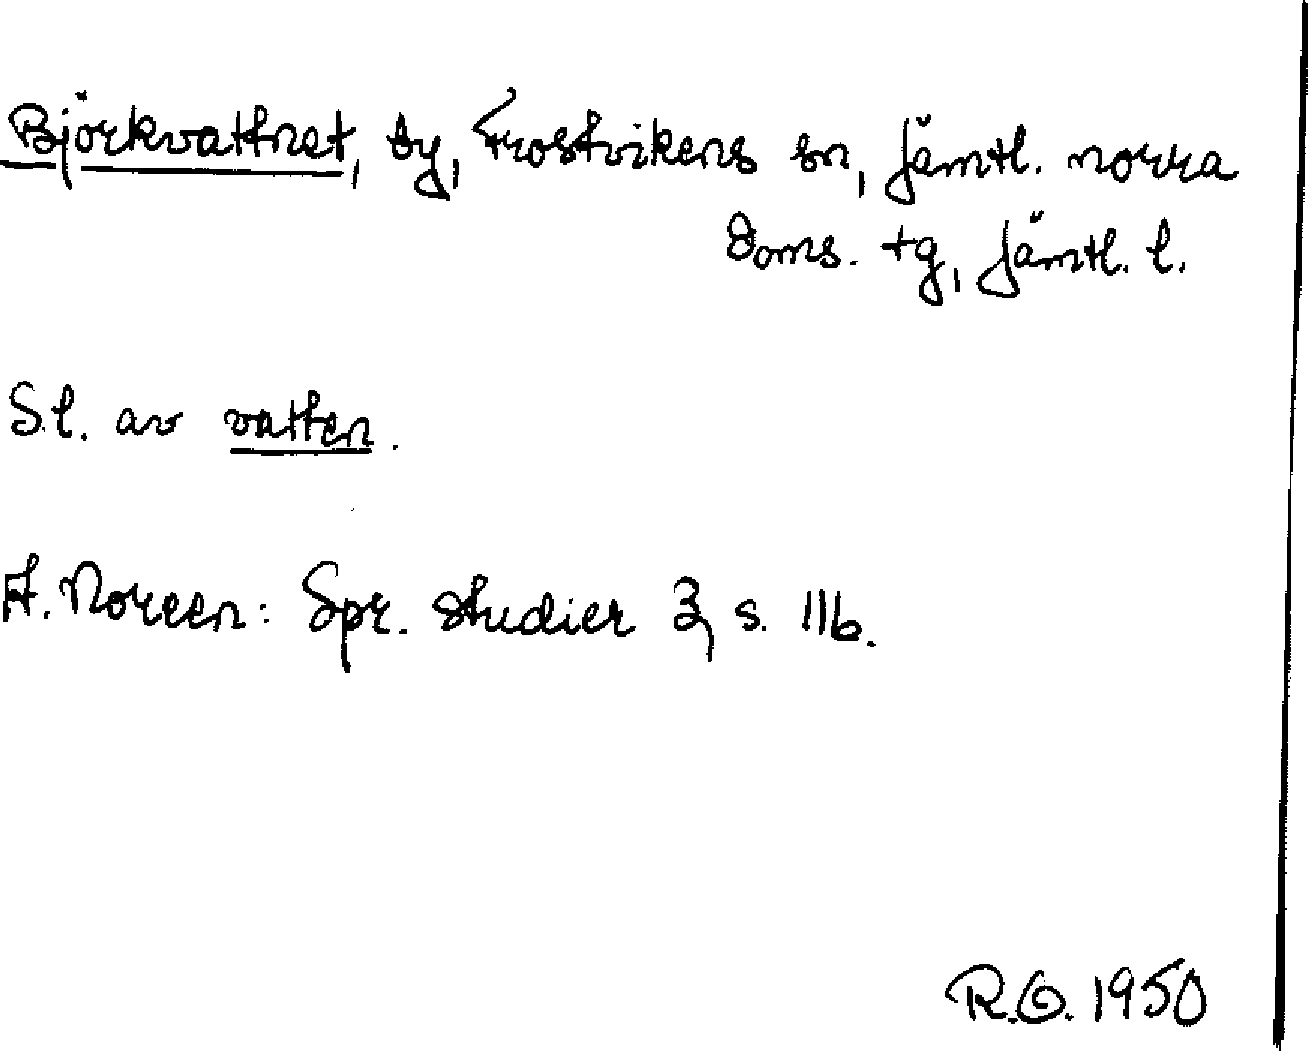 Björkvattnet, by, Frostvikens sn, Jämtl. norra
doms. tg, Jämtl. l.
S.l. av vatten.
A. Noreen: Spr. studier 3, s. 116.
R.O. 1950